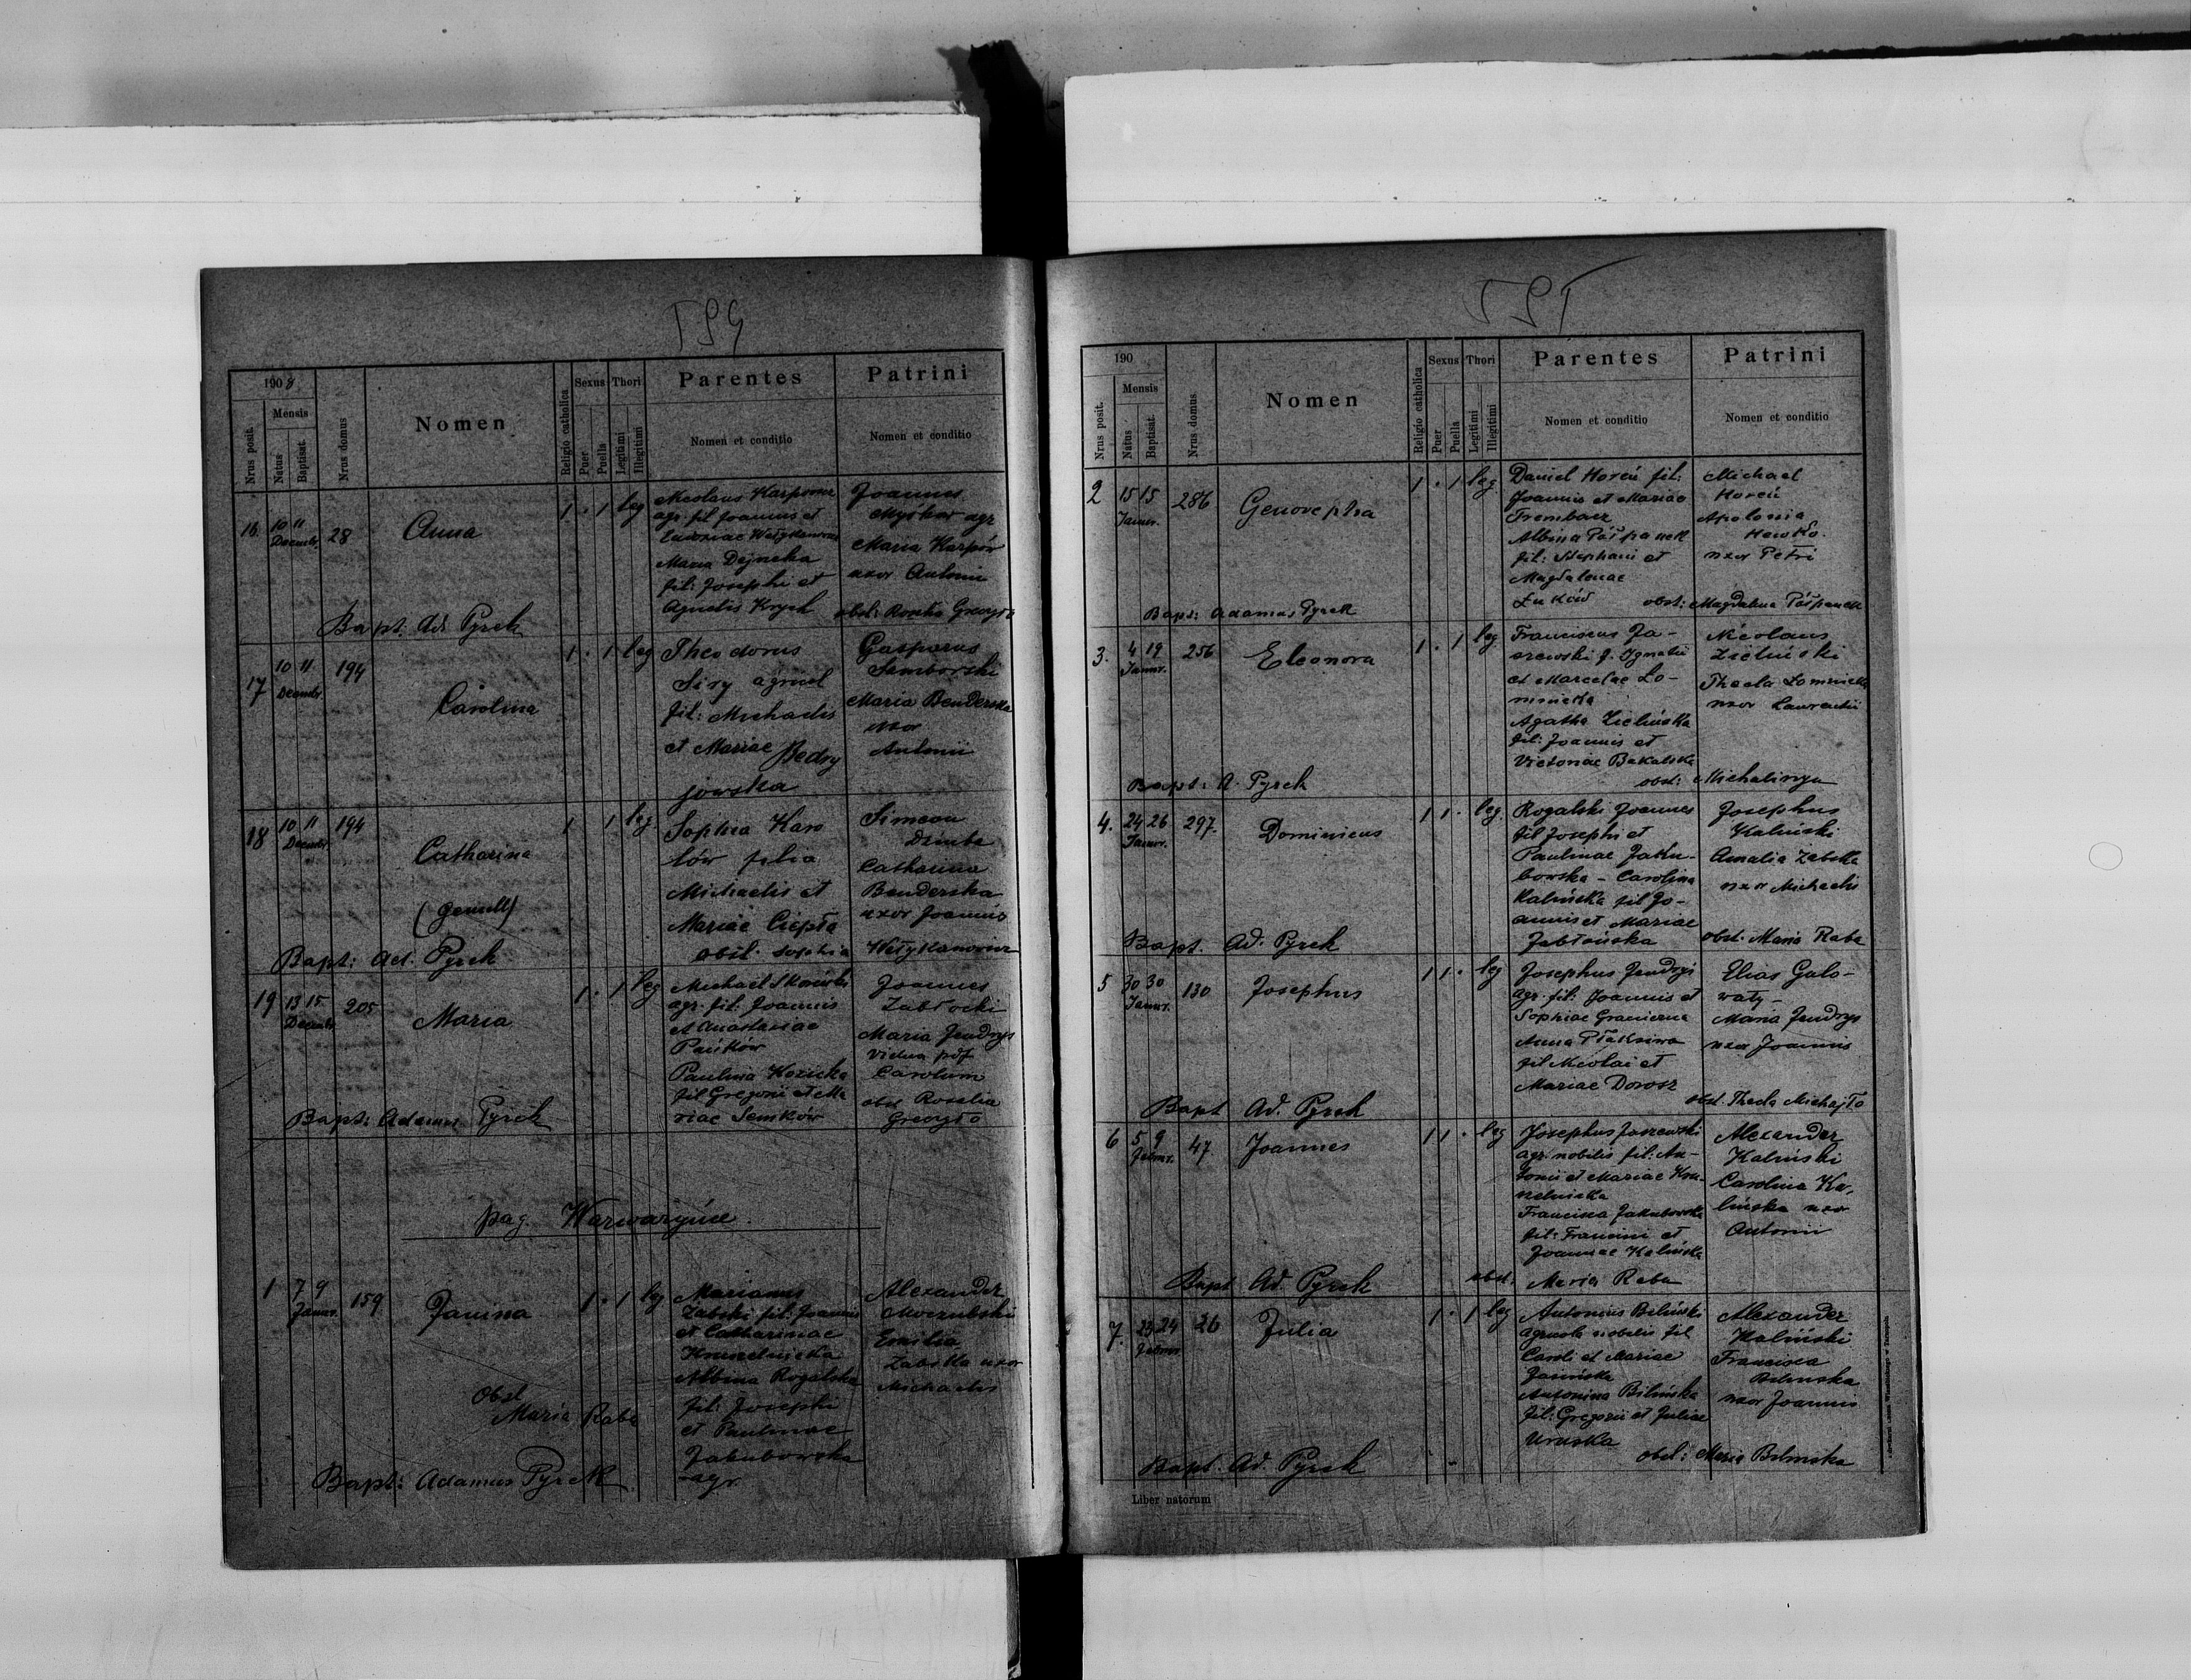 1908
Nrus posit.
Mensis
Natus
Baptisat.
Nrus domus
Nomen
Religio catholica
Sexus
Puer
Puella
Thori
Legitimi
Illegitimi
Parentes
Nomen et conditio
Patrini
Nomen et conditio
16. 10 11 Decembr. 28 Anna 1 . 1 leg
Nicolaus
agr. fil Joannis et
Maria Dejneka
fil: Josephi et
Agnetis Krych
Joannes
agr
Maria Karpów
uxor Antonii
obst: Rosalia
Bapt. Ad. Pyrek
17 10 11 Decembr. 194 Carolina 1 . 1 leg
Theodorus
Siry agricol
fil: Michaelis
et Mariae Bedry
jowska
Gasparus
Samborski
Maria Benderska
uxor
Antonii
18 10 11 Decembr. 194 Catharina 1 1 leg
(gemell)
Sophia Karo
lów filia
Michaelis et
Mariae Ciepła
obst. Sophia Wełykanowicz
Simeon
Dziuba
Catharina
Benderska
uxor Joannis
Bapt: Ad. Pyrek
19 13 15 Decembr. 205 Maria 1 . 1 leg
Michael
agr. fil: Joannis
et Anastasiae
Pańków
Paulina Kozicka
fil Gregorii et Ma
riae Semków
Joannes
Zabłocki
Maria Jendrys
vidua
Carolum
obst Rosalia
Bapt: Adamus Pyrek
pag. Warwaryńce.
1 7 9 Januar. 159 Janina 1 . 1 leg
Marianus
Zabski fil: Joannis
et Catharinae
Kruszelnicka
Albina Rogalska
fil: Josephi
et Paulinae
Jakubowska
agr.
Alexander
Emilia
Zabska uxor
Michaelis
Obst
Maria Raba
Bapt: Adamus Pyrek.
190
Nrus posit.
Mensis
Natus
Baptisat.
Nrus domus
Nomen
Religio catholica
Sexus
Puer
Puella
Thori
Legitimi
Illegitimi
Parentes
Nomen et conditio
Patrini
Nomen et conditio
2 15 15 Januar. 286 Genovepha 1 . 1 leg.
Daniel Horeń fil:
Joannis et Mariae
Trembacz
Albina Pośpanek
fil: Stephani et
Magdalenae
Łuków
Michael
Horeń
Apolonia
uxor Petri
obst: Magdalena Pośpanek
Bapt: Adamus Pyrek
3. 4 19 Januar. 256 Eleonora 1 . 1 leg.
Franciscus Ja-
szewski f. Ignatii
et Marcelae Ło-
mnicka
Agatha Zielińska
fil: Joannis et
Victoriae Bakalska
Nicolaus
Zieliński
Thecla Łomnicka
uxor Laurentii
obst: Michalinyn
Bapt: A. Pyrek
4. 24 26 Januar. 297. Dominicus 1 1 . leg.
Rogalski Joannes
fil Josephi et
Paulinae Jaku-
bowska - Carolina
Kalińska fil Jo-
annis et Mariae
Jabłońska
Josephus
Kaliński
Amalia Zabska
uxor Michaelis
obst: Maria Raba
Bapt. Ad. Pyrek
5 30 30 Januar. 130 Josephus 1 1 . leg
Josephus Jendrys
agr. fil: Joannis et
Sophiae
Anna
fil Nicolai et
Mariae Dorosz
Elias Galo-
waty -
Maria Jendrys
uxor Joannis
obst. Thecla Michajło
Bapt Ad. Pyrek
6 5 9 Febr. 47 Joannes 1 1 . leg
Josephus Jaszewski
agr. nobilis fil: An-
tonii et Mariae Kru-
szelnicka
Francisca Jakubowska
fil: Francisci et
Joannae Kalińska
Alexander
Kaliński
Carolina Ka-
lińska uxor
Antonii
obst: Maria Raba
Bapt Ad. Pyrek
7. 23 24 Febr. 26 Julia 1 . 1 leg
Antonius Biliński
agricola nobilis fil
Caroli et Mariae
Jasińska
Antonina Bilińska
fil: Gregorii et Juliae
Uruska
Alexander
Kaliński
Francisca
Bilinska
uxor Joannis
obst: Maria Bilinska
Bapt. Ad. Pyrek
Liber natorum